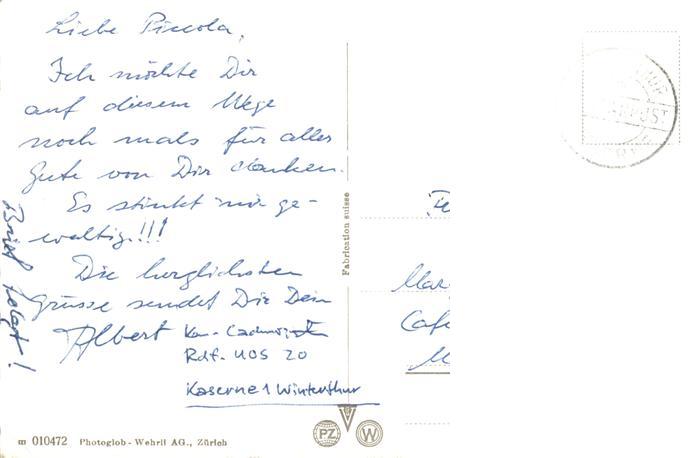 Liebe Piccola,
Ich möchte Dir
auf diesem Wege
noch mals für alles
Gute von Dir danken.
Es stinkt mir ge-
waltig!!!
Die herzlichsten
Grüsse sendet Dir Dein
Albert
Rdf. UOS 20
Kaserne 1 Winterthur
Brief folgt!
Fabrication suisse
Mar
Cafe
m 010472 Photoglob-Wehrli AG., Zürich
PZ W